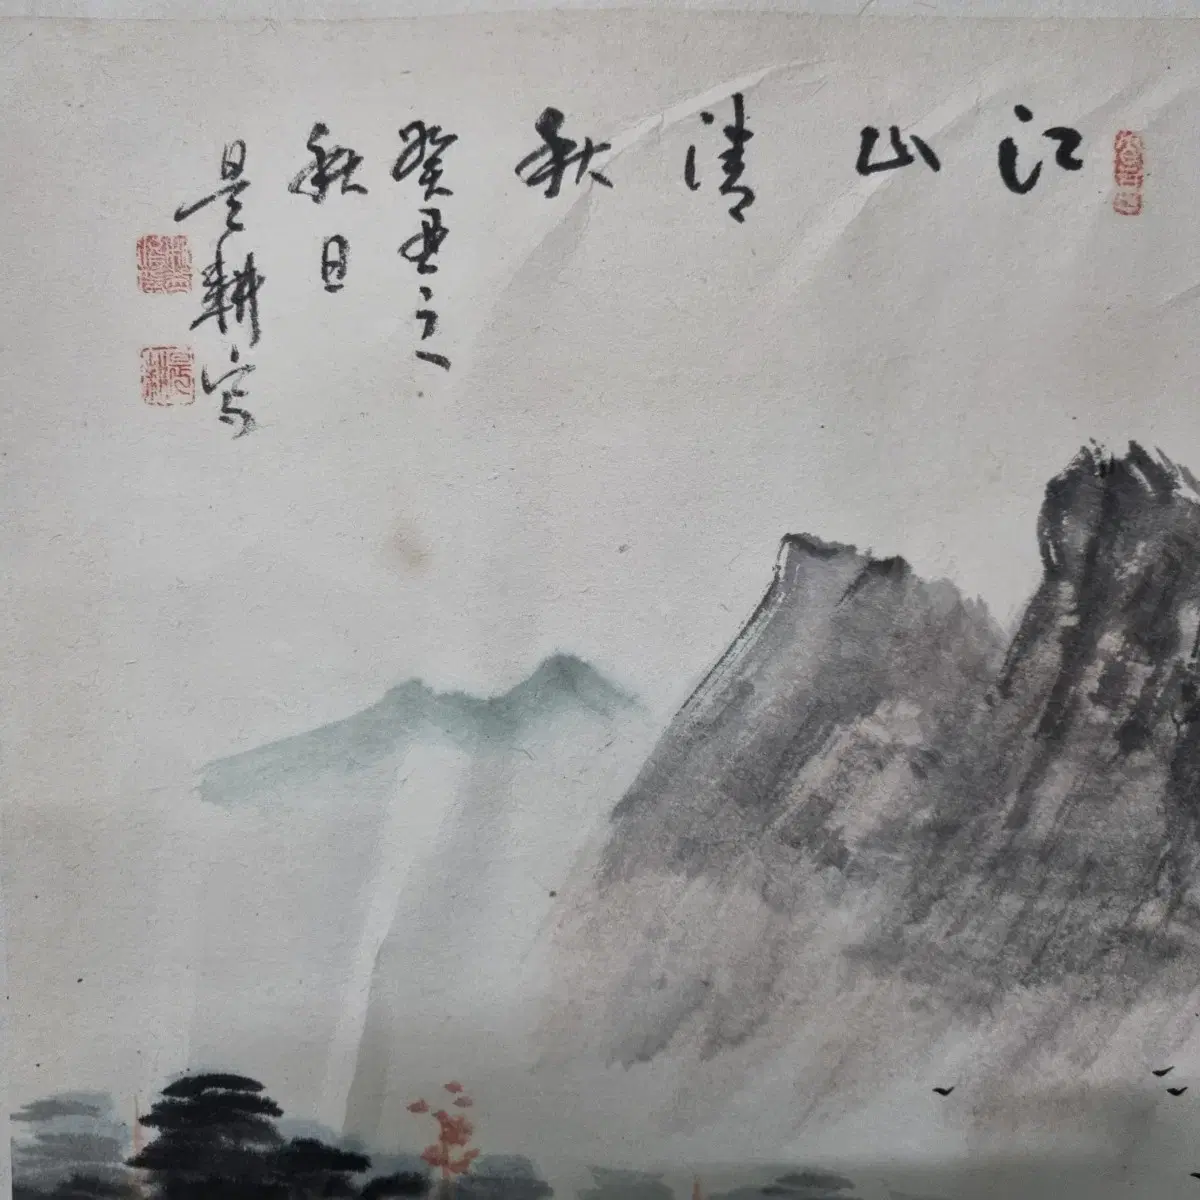 江山清秋
癸丑之
秋日
是耕寫